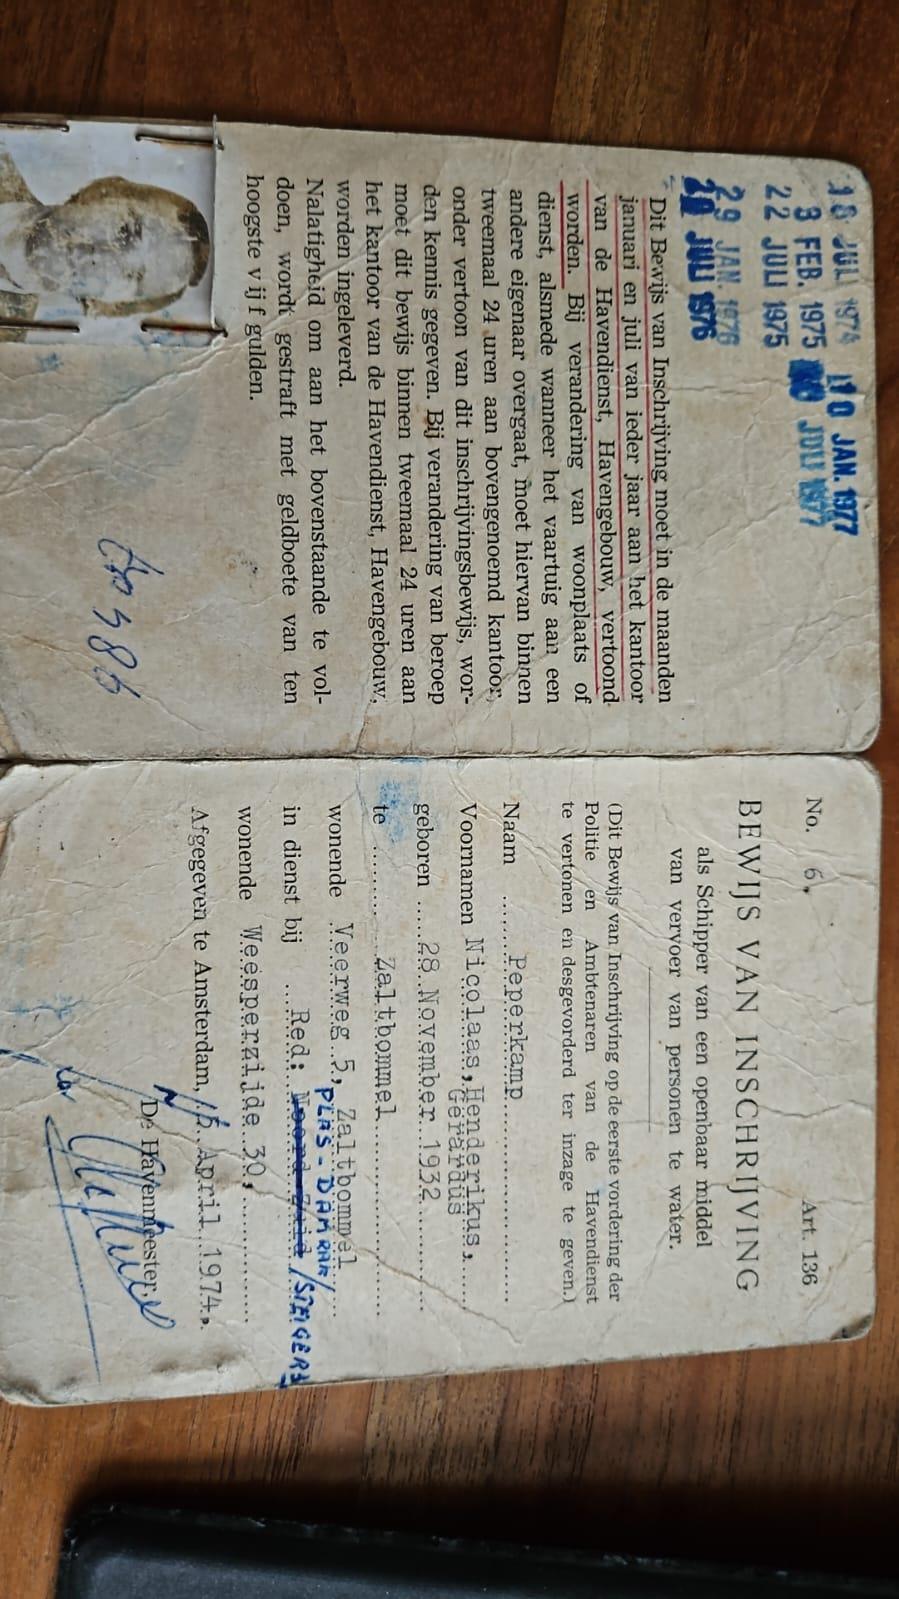 18 JULI 1974
3 FEB. 1975
22 JULI 1975
29 JAN. 1976
JULI 1976
10 JAN. 1977
JULI 1977
Dit Bewijs van Inschrijving moet in de maanden
januari en juli van ieder jaar aan het kantoor
van de Havendienst, Havengebouw, vertoond
worden. Bij verandering van woonplaats of
dienst, alsmede wanneer het vaartuig aan een
andere eigenaar overgaat, moet hiervan binnen
tweemaal 24 uren aan bovengenoemd kantoor,
onder vertoon van dit inschrijvingsbewijs, wor-
den kennis gegeven. Bij verandering van beroep
moet dit bewijs binnen tweemaal 24 uren aan
het kantoor van de Havendienst, Havengebouw,
worden ingeleverd.
Nalatigheid om aan het bovenstaande te vol-
doen, wordt gestraft met geldboete van ten
hoogste vijf gulden.
No. 6. Art. 136
BEWIJS VAN INSCHRIJVING
als Schipper van een openbaar middel
van vervoer van personen te water.
(Dit Bewijs van Inschrijving op de eerste vordering der
Politie en Ambtenaren van de Havendienst
te vertonen en desgevorderd ter inzage te geven.)
Naam Peperkamp
Voornamen Nicolaas, Henderikus,
Gerardus
geboren 28 November 1932
te Zaltbommel
wonende Veerweg 5, Zaltbommel
PLAS-DAMRAK/
in dienst bij Red: Noord-Zuid /STEIGER
wonende Weesperzijde 30,
Afgegeven te Amsterdam, April 1974.
De Havenmeester,